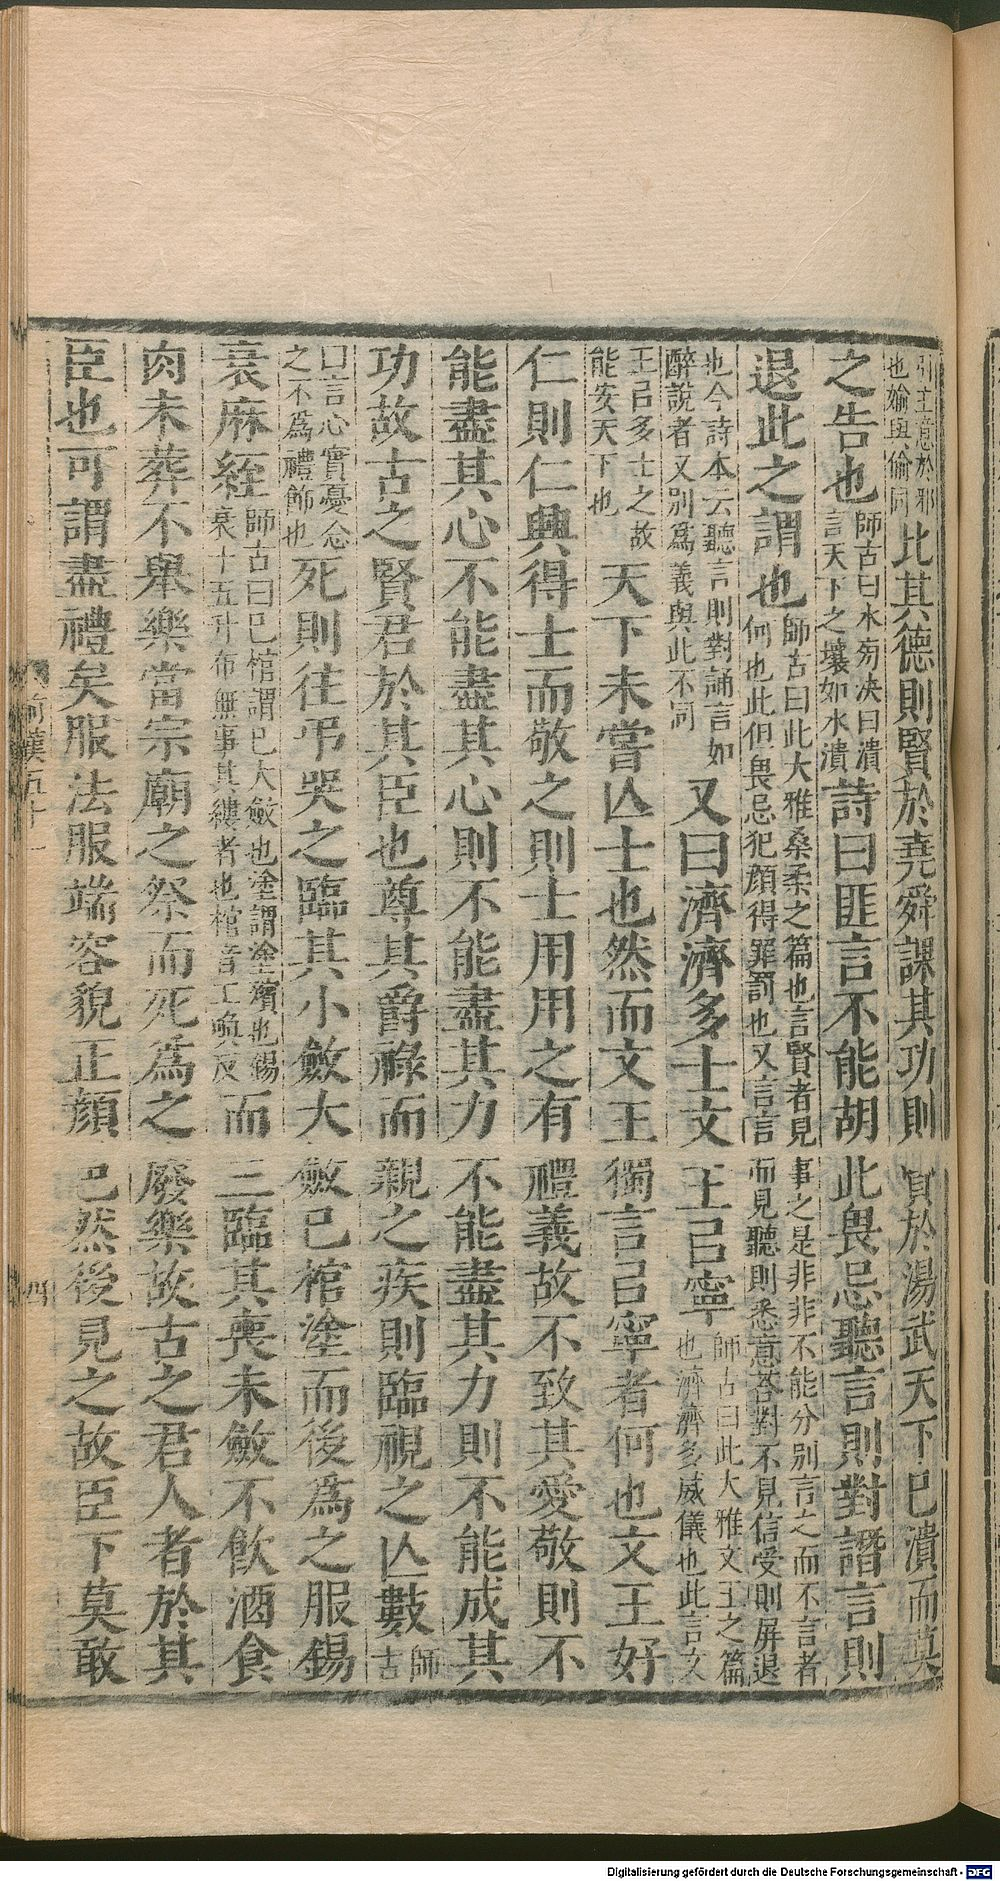 引主意於邪也媮與偷同比其德則賢於堯舜課其功則賢於湯武天下已潰而莫
之告也師古曰水旁决曰潰言天下之壞如水潰詩曰匪言不能胡此畏忌聽言則對譖言則
退此之謂也師古曰此大雅桑柔之篇也言賢者見事之是非非不能分別言之而不言者何也此但畏忌犯顔得罪罰也又言言而見聽則悉意荅對不見信受則屏退
也今詩本云聽言則對誦言如醉說者又別爲義與此不同又曰濟濟多士文王㠯寧師古曰此大雅文王之篇也濟濟多威儀也此言文
王㠯多士之故能安天下也天下未嘗亾士也然而文王獨言㠯寧者何也文王好
仁則仁興得士而敬之則士用用之有禮義故不致其愛敬則不
能盡其心不能盡其心則不能盡其力不能盡其力則不能成其
功故古之賢君於其臣也尊其爵祿而親之疾則臨視之亾數師古
曰言心實憂念之不爲禮飾也死則往弔哭之臨其小斂大斂已棺塗而後爲之服錫
衰麻絰師古曰已棺謂已大斂也塗謂塗殯也錫衰十五升布無事其縷者也棺音工喚反而三臨其喪未斂不飲酒食
肉未葬不舉樂當宗廟之祭而死爲之廢樂故古之君人者於其
臣也可謂盡禮矣服法服端容貌正顏色然後見之故臣下莫敢
前漢五十一
四
Digitalisierung gefördert durch die Deutsche Forschungsgemeinschaft - DFG